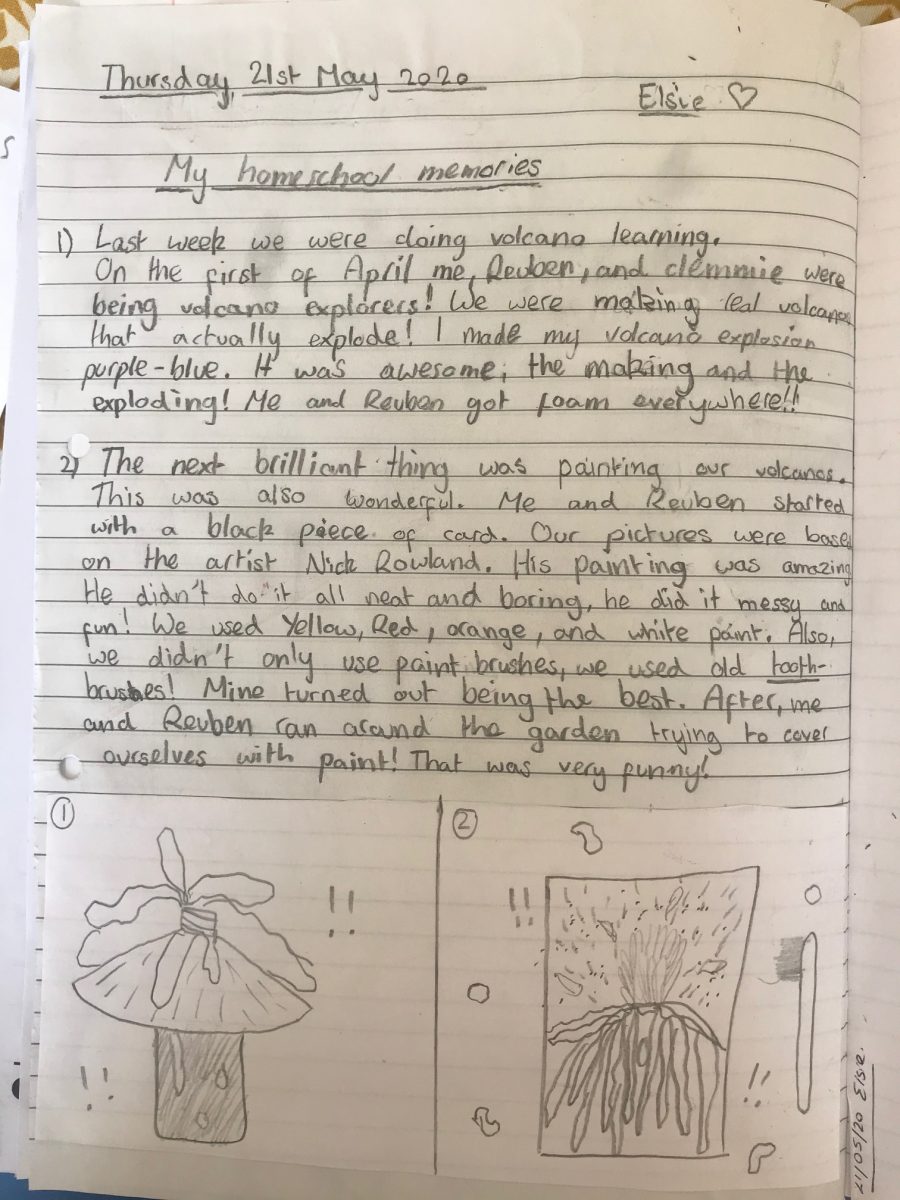 Thursday, 21st May 2020
Elsie ♡
My homeschool memories
1) Last week we were doing volcano learning.
On the first of April me, Reuben, and clemmie were
being volcano explorers! We were making real volcanos
that actually explode! I made my volcano explosion
purple-blue. It was awesome; the making and the
exploding! Me and Reuben got foam everywhere!!
2) The next brilliant thing was painting our volcanos.
This was also wonderful. Me and Reuben started
with a black piece of card. Our pictures were base
on the artist Nick Rowland. His painting was amazing
He didn't do it all neat and boring, he did it messy and
fun! We used Yellow, Red, orange, and white paint. Also,
we didn't only use paint brushes, we used old tooth-
brushes! Mine turned out being the best. After, me
and Reuben ran around the garden trying to cover
ourselves with paint! That was very funny!
1
!!
!!
2
!!
!!
21/05/20 Elsie.